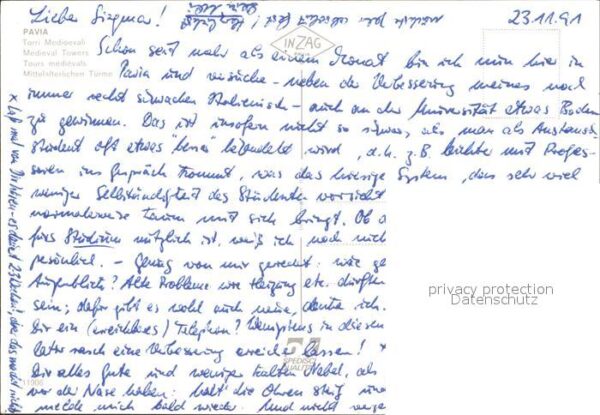 23.11.91
Lieber Siegmar!
PAVIA
Torri Medioevali
Medieval Towers
Tours medievals
Mittelalterlichen Türme
INZAG
Schon seit mehr als einem Monat bin ich nun hier in
Pavia und versuche - neben der Verbesserung meines noch
immer recht schwachen Italienisch - auch an der Universität etwas Boden
zu gewinnen. Das ist insofern nicht so schwer, als man als Austausch-
student oft etwas "besser" behandelt wird, d.h. z.B. leichter mit Profes-
soren ins Gespräch kommt, was das hiesige System, das sehr viel
weniger Selbständigkeit des Studenten vorsieht
normalerweise kaum mit sich bringt. Ob
fürs Studium nützlich ist, weiß ich noch nich
persönlich. - Genug von mir geredet: wie ge
Augenblick? Alte Probleme wie Heizung etc. dürften
sein; dafür gibt es wohl auch neue, denke ich.
Dir ein (erreichbares) Telephon? Wenigstens in diesem
rasch eine Verbesserung erreichen lassen!
Dir alles Gute und weniger kalten Nebel, als
vor der Nase haben; halt die Ohren steif und
melde mich bald wieder. Und nicht
privacy protection
Datenschutz
11906